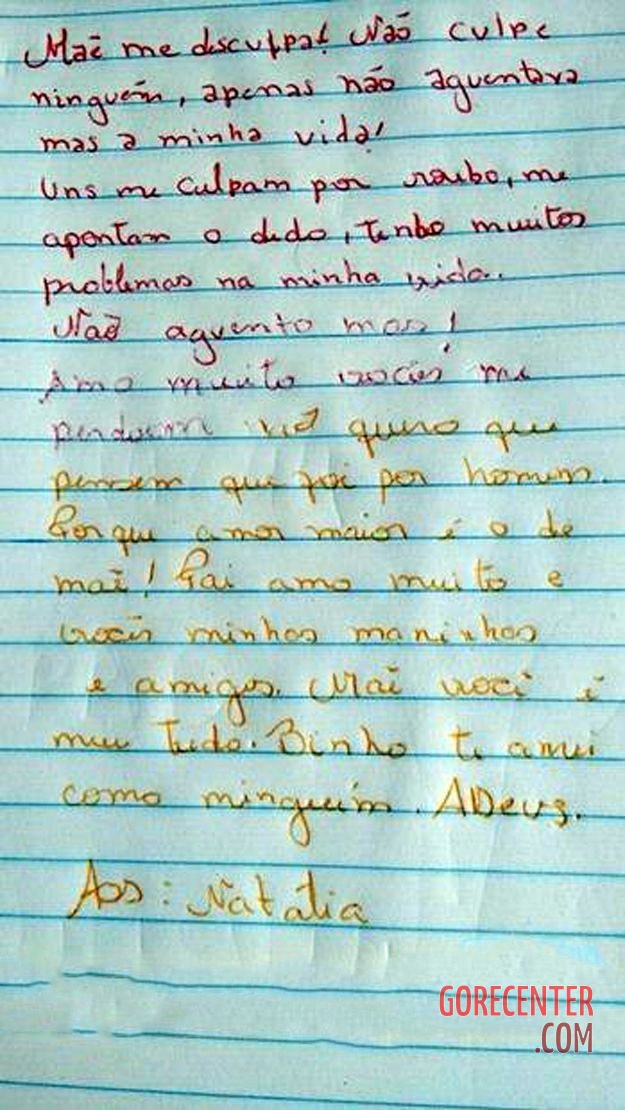 Mãe me desculpa! Não culpe
ninguém, apenas não aguentava
mas a minha vida!
Uns me culpam por roubo, me
apontam o dedo, tenho muitos
problemas na minha vida.
Não aguento mas!
Amo muito vocês me
perdoem não quero que
pensem que foi por homem.
Porque amor maior é o de
mãe! Pai amo muito e
vocês minhas maninhas
e amigos. Mãe você é
meu tudo. Binho te amei
como ninguém. ADeus.
Ass: Natalia
GORECENTER
.COM